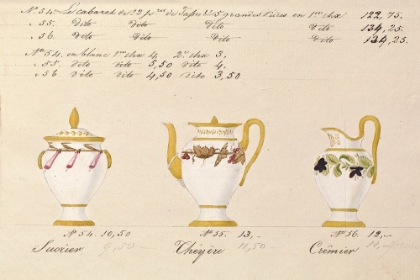 N° 54. Le cabaret de 22 p.ces de Tasses & 5 grandes Pièces en 1er choix 122,75.
" 55. Dito Dito Dito Dito 134,25.
" 56. Dito Dito Dito Dito 134,25.
N° 54. en blanc 1er choix 4, 2e choix 3.
" 55. Dito Dito 5,50 Dito 4.
" 56 Dito Dito 4,50 Dito 3,50
N° 54. 10,50 N° 55. 13,- N° 56. 12,-
Sucrier 6,50 Théyère 11,50 Crêmier